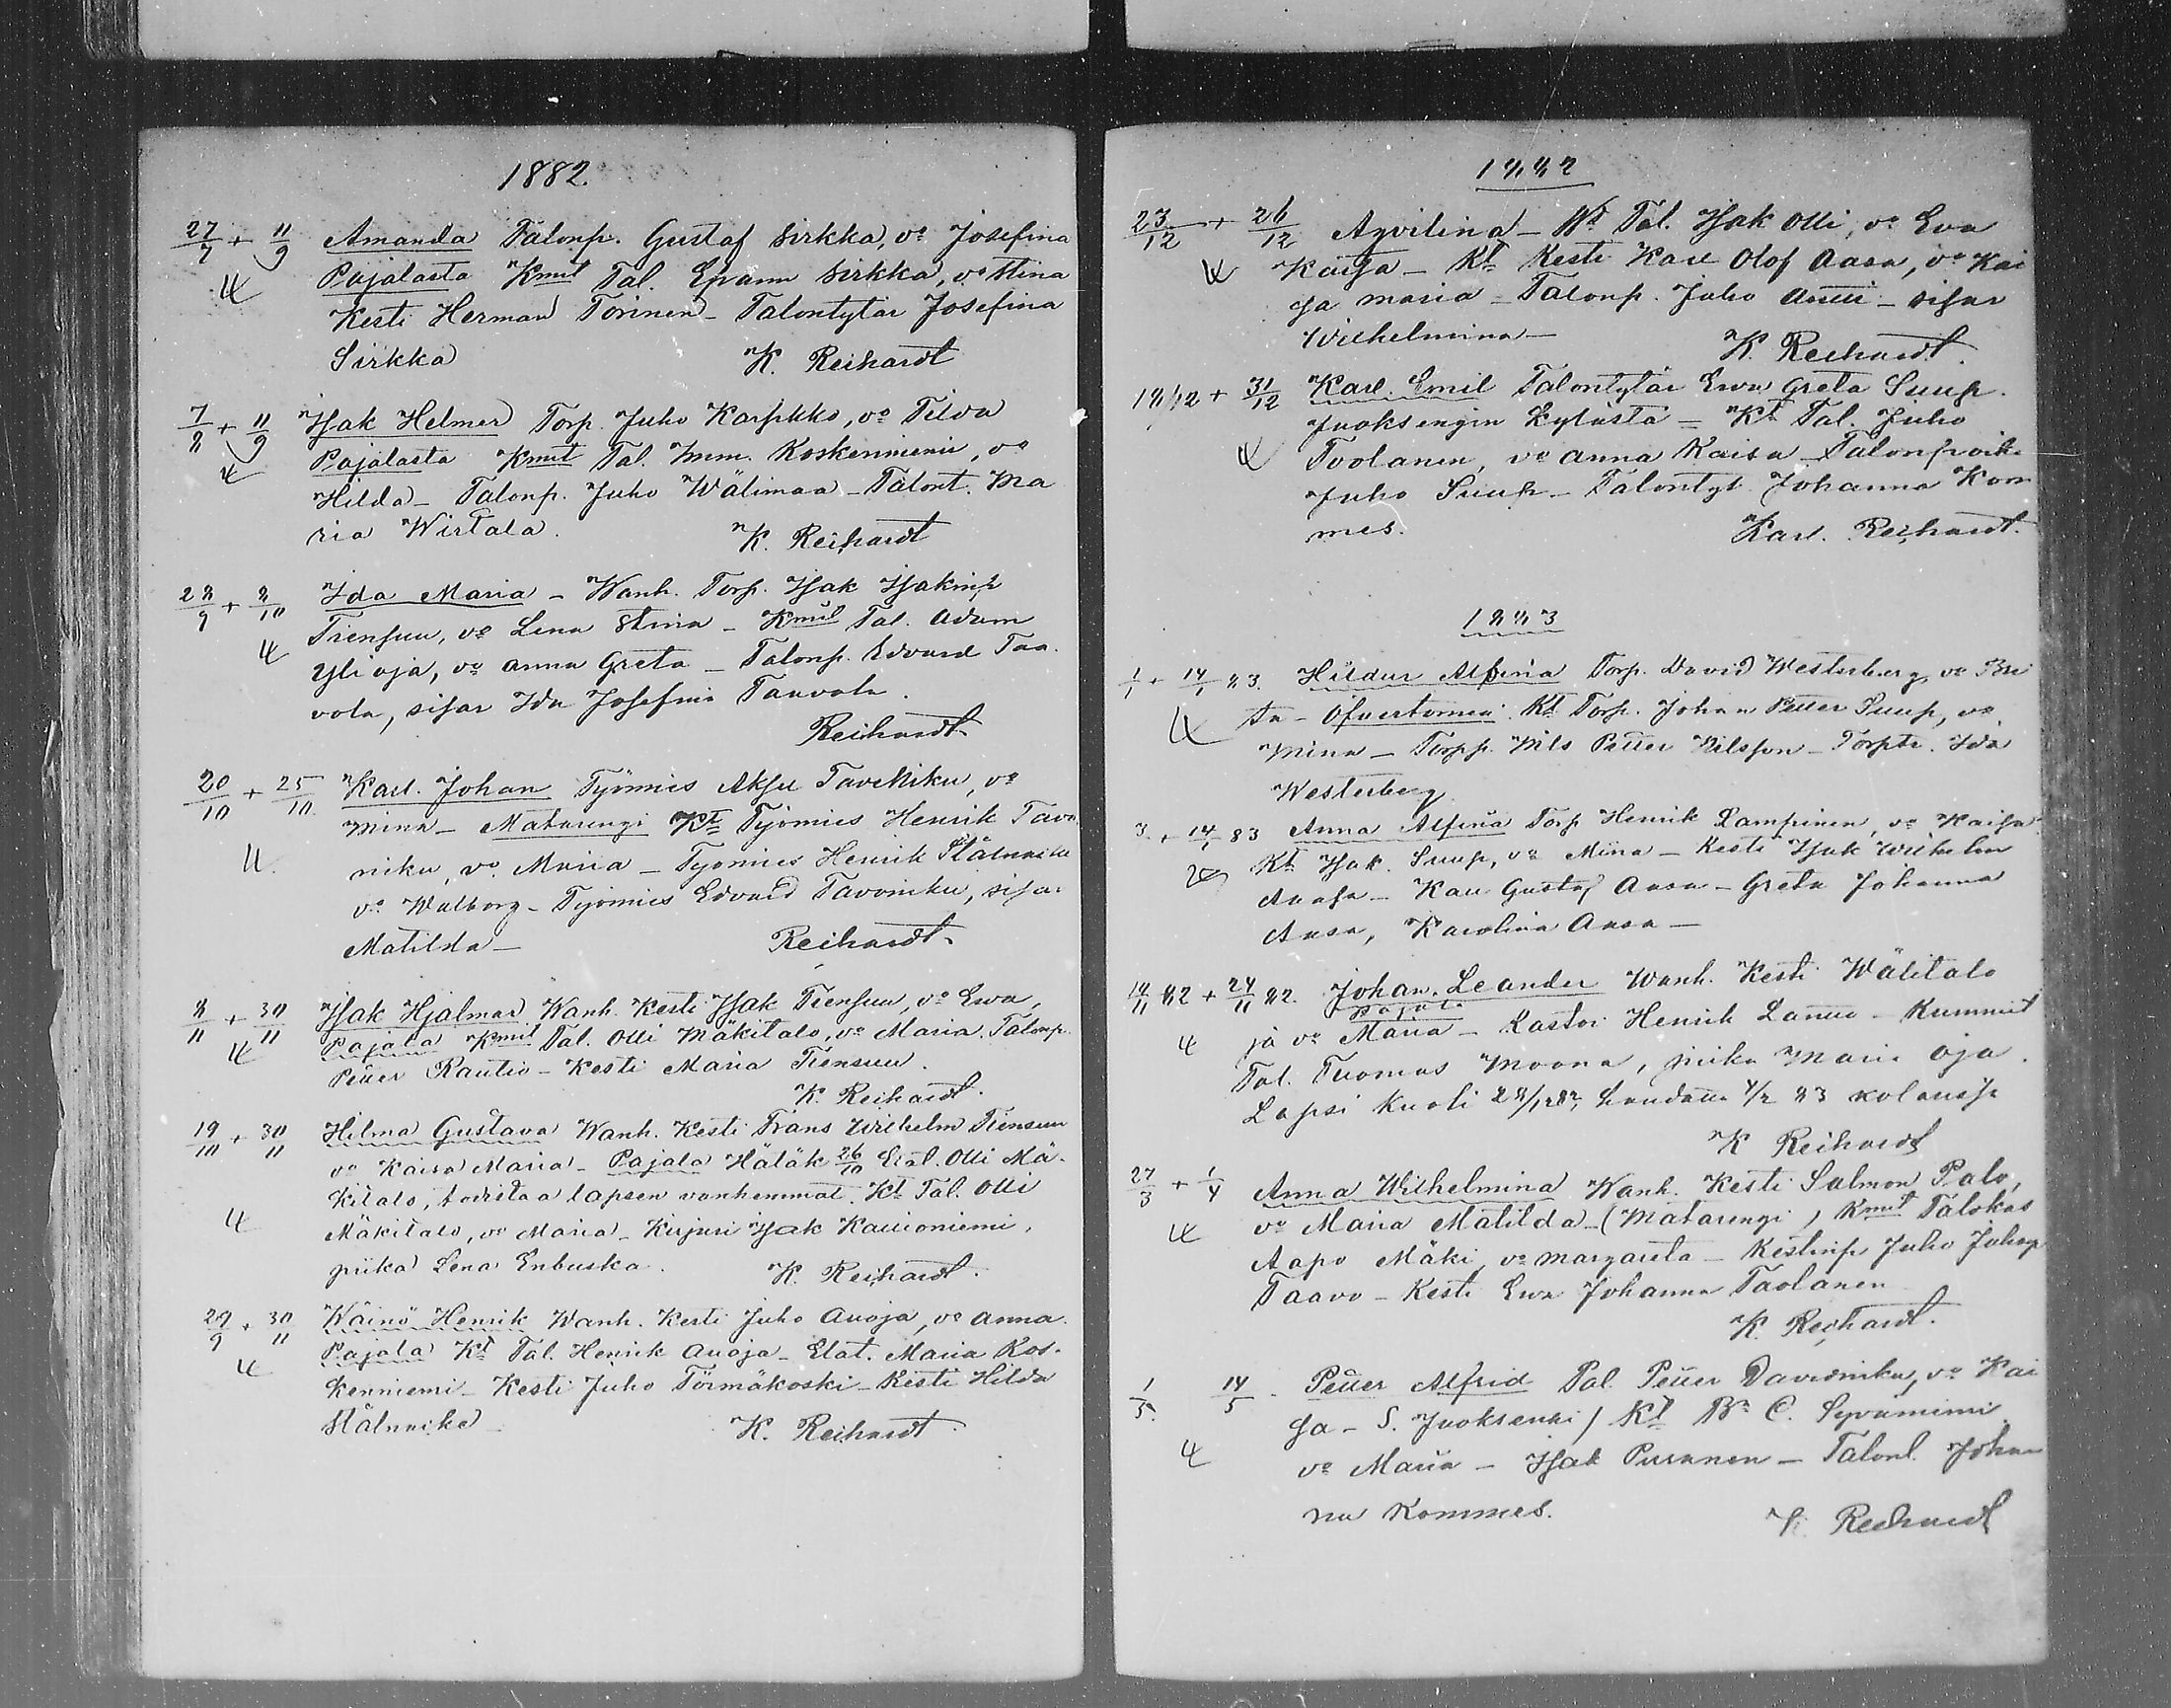 1882.
27/7 + 11/9 Amanda Talonp. Gustaf Sirkka, vo Josefina
4 Pajalasta Kmit Tal. Epram Sirkka, vo Stina
Kesti Herman Törinen - Talontytär Josefina
Sirkka K. Reihardt
7/8 + 11/9 Isak Helmer Torp. Juho Karpikko, vo Tilda
4 Pajalasta Kmit Tal. Imm. Koskenniemi, vo
Hilda - Talonp. Juho Wälimaa - Talont. Ma
ria Wirtala. K. Reihardt
28/9 + 8/10 Ida Maria - Wanh. Torp. Isak Isakinp
4 Tiensuu, vo Lena Stina - Kmit Tal. Adam
Yli oja, vo Anna Greta - Talonp. Edvard Taa
vola, sisar Ida Josefina Taavola.
Reihardt
20/10 + 25/10 Karl. Johan Työmies Aksel Tavoniku, vo
4 Mina - Matarengi Kt Työmies Henrik Tavo
niku, vo Maria - Työmies Henrik Stålnacke
vo Walborg - Työmies Edvard Tavoniku, sisar
Matilda - Reihardt
8/11 + 30/11 Isak Hjalmar Wanh. Kesti Isak Tiensuu, vo Ewa,
4 Pajala Kmit Tal. Olli Mäkitalo, vo Maria. Talonp.
Petter Rautio - Kesti Maria Tiensuu.
K. Reihardt.
19/10 + 30/11 Hilma Gustava Wanh. Kesti Frans Wilhelm Tiensuu
vo Kaisa Maria - Pajala Hätäk 26/10 Olli Mä-
kitalo, todistaa lapsen vanhemmat. Kt Tal. Olli
4 Mäkitalo, vo Maria - Kirjuri Isak Kauioniemi,
piika Lena Enbuska. K. Reihardt.
29/9 + 30/11 Wäinö Henrik Wanh. Kesti Juho Auoja, vo Anna.
4 Pajala Kt Tal. Henrik Auoja - Elat. Maria Kos-
kenniemi - Kesti Juho Törmäkoski - Kesti Hilda
Stålnacke - K. Reihardt.
1882
23/12 + 26/12 Aqvilina - Wt Tal. Isak Olli, vo Eva
4 Kaisa - Kt Kesti Karl Olof Aasa, vo Kai
sa Maria - Talonp. Juho - sisar
Wilhelmina - K. Reihardt.
18/12 + 31/12 Karl. Emil Talontytär Ewa Greta Suup.
Juoksengin kylästä = Kt Tal. Juho
4 Toolanen, vo Anna Kaisa - Talonpoik.
Juho Suup - Talontyt. Johanna Kom
mes. Karl. Reihardt.
1883
1/1 + 14/1 83. Hildur Alfina Torp. David Westerberg, vo Bri
4 ta - Öfvertorneå. Kt Torp. Johan Petter Suup, vo
Mina - Torpp. Nils Petter Nilsson - Torptr. Ida
Westerberg
3 + 14/1 83 Anna Alfina Torp Henrik Lampinen, vo Kaisa
4 Kt Isak. Suup, vo Mina - Kesti Isak Wilhelm
Aasa - Karl Gustaf Aasa - Greta Johanna
Aasa, Karolina Aasa -
14/11 82 + 24/11 82. Johan. Leander Wanh. Kesti Wälitalo
Pajala
4 ja vo Maria - Kastoi Henrik Lanno - Kummit
Tal. Tuomas Moona, piika Maria Oja.
Lapsi kuoli 28/12 82, haudattu 4/2 83
K Reihardt
27/3 + 1/4 Anna Wilhelmina Wanh. Kesti Salmon Palo,
4 vo Maria Matilda - (Matarengi) Kmit Talokas
Aapo Mäki, vo Margareta - Kestinp Juho Juhonp
Taavo - Kesti Ewa Johanna Taolanen
K. Reihardt.
1/5. 14/5. Petter Alfrid Tal. Petter Davidniku, vo Kai
4 sa - S. Juoksenki) Kt C. Syväniemi
vo Maria - Isak Puranen - Talont. Johan
na Kommes. K. Reihardt